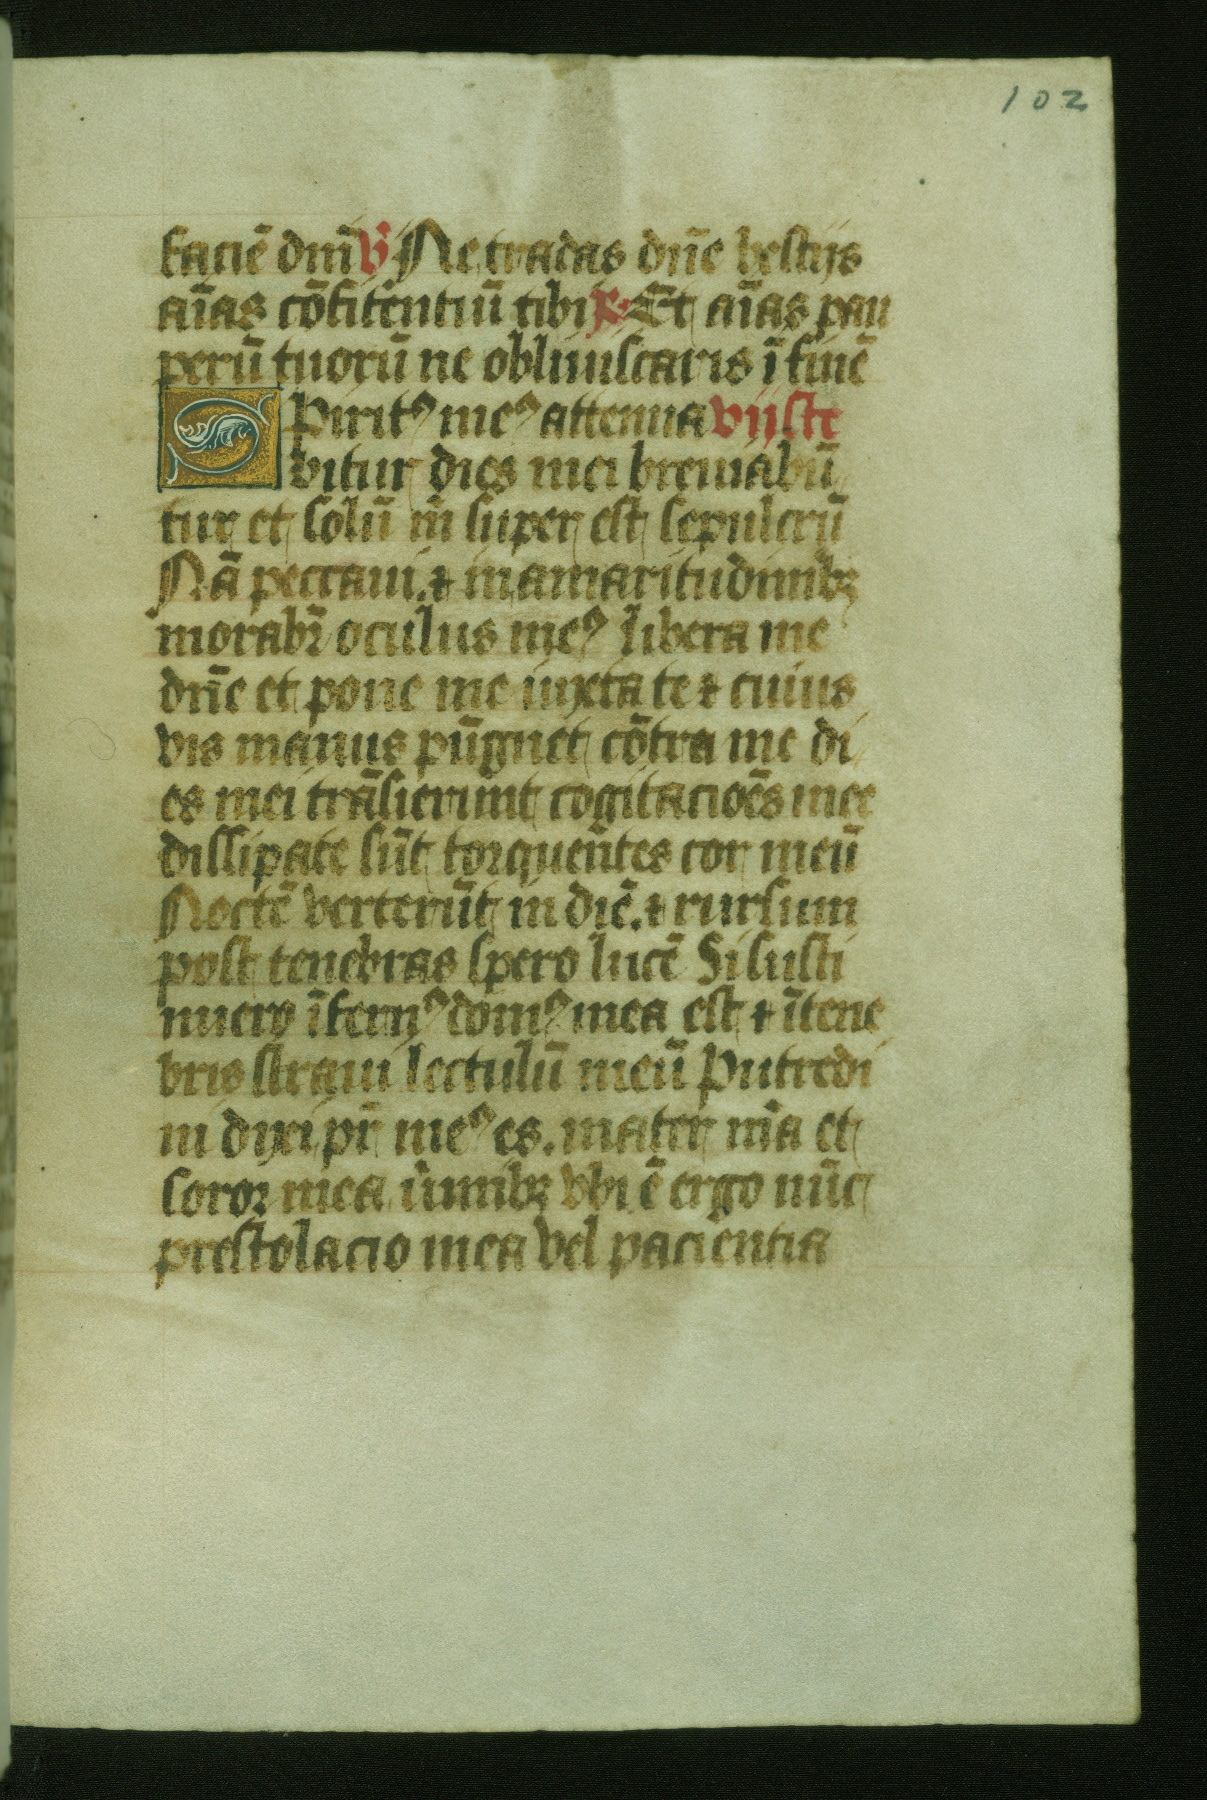 102
faciē dnī V Ne tradas dn̄e bestijs
aīas cōfitentiū tibi R Et aīas pau
perū tuorū ne obliuiscaris ī finē
Spiritꝰ meꝰ attenua vijste
bitur dies mei breuiabū
tur et solū m̄ super est sepulcrū
Nā peccaui. ⁊ in amaritudinibꝫ
morabr̄ oculus meꝰ libera me
dn̄e et pone me iuxta te ⁊ cuius
vis manus pūgnet cōtra me di
es mei trāsierunt cogitacioēs mee
dissipate sūt torquen̄tes cor meū
Noctē verterūt in diē. ⁊ rursum
post tenebras spero lucē Si susti
nuero īfernꝰ domꝰ mea est ⁊ ītene
bris straui lectulū meū Putredi
ni dixi pr̄ meꝰ es. mater m̄a et
soror mea v̄mibꝫ vbi ē ergo nūc
prestolacio mea vel pacientia